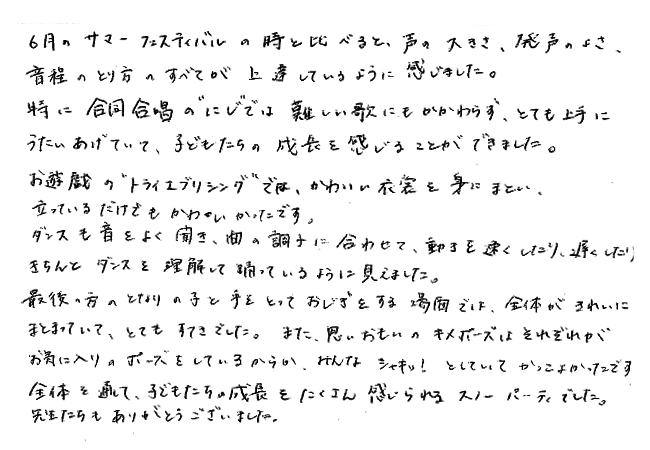 6月のサマーフェスティバルの時と比べると、声の大きさ、発声のよさ、
音程のとり方のすべてが上達しているように感じました。
特に合同合唱の"にじ"では難しい歌にもかかわらず、とても上手に
うたいあげていて、子どもたちの成長を感じることができました。
お遊戯の"トライエブリシング"では、かわいい衣裳を身にまとい、
立っているだけでもかわいかったです。
ダンスも音をよく聞き、曲の調子に合わせて、動きを速くしたり、遅くしたり
きちんとダンスを理解して踊っているように見えました。
最後の方のとなりの子と手をとっておじぎをする場面では、全体がきれいに
まとまっていて、とてもすてきでした。また、思いおもいのキメポーズはそれぞれが
お気に入りのポーズをしているからか、みんなシャキッ!としていてかっこよかったです
全体を通して、子どもたちの成長をたくさん感じられるスノーパーティでした。
先生たちもありがとうございました。